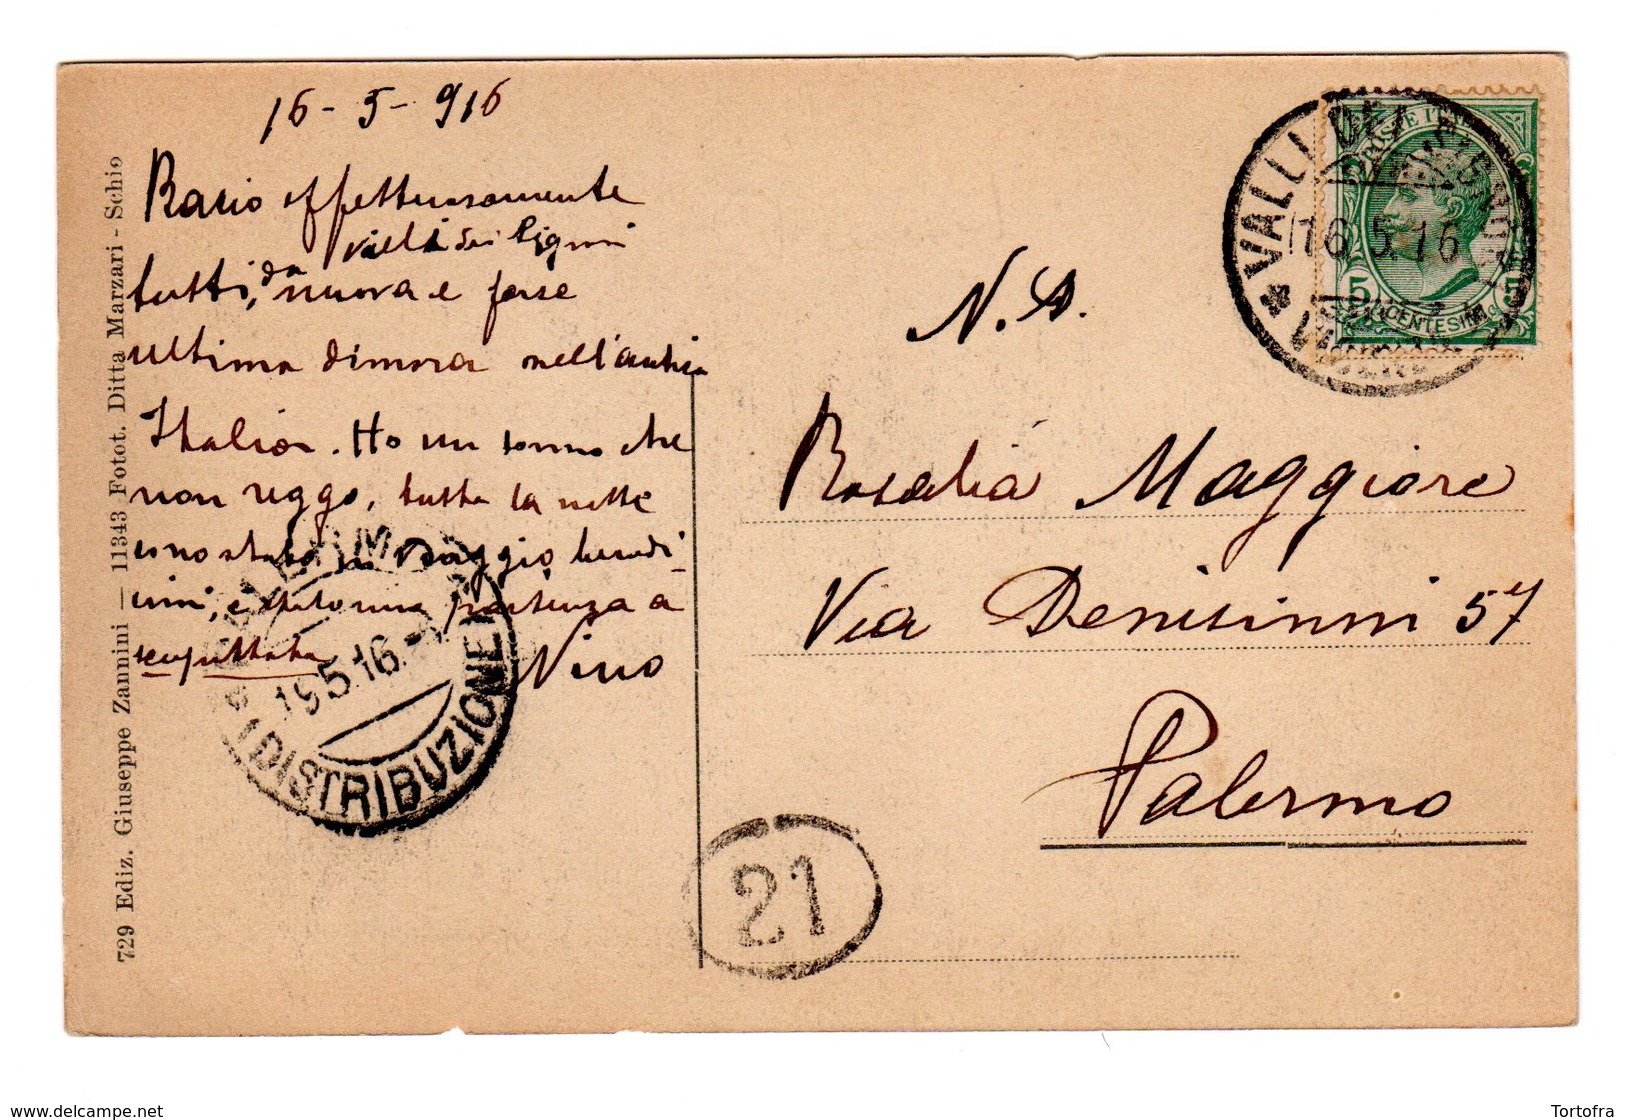 16-5-916
Bacio affettuosamente
Valli dei Signori
tutti, da nuova e forse
ultima dimora nell'antica
Italia. Ho un sonno che
non reggo, tutta la notte
sono stato in viaggio
partenza a
Nino
729 Ediz. Giuseppe Zannini — 11343 Fotot. Ditta Marzari - Schio
N. D.
Rosalia Maggiore
Via Denisinni 57
Palermo
VALLI DEI SIGNORI
16.5.16
POSTE ITALIANE
5
CENTESIMI
PALERMO
19.5.16
DISTRIBUZIONE
21
delcampe.net
Tortofra